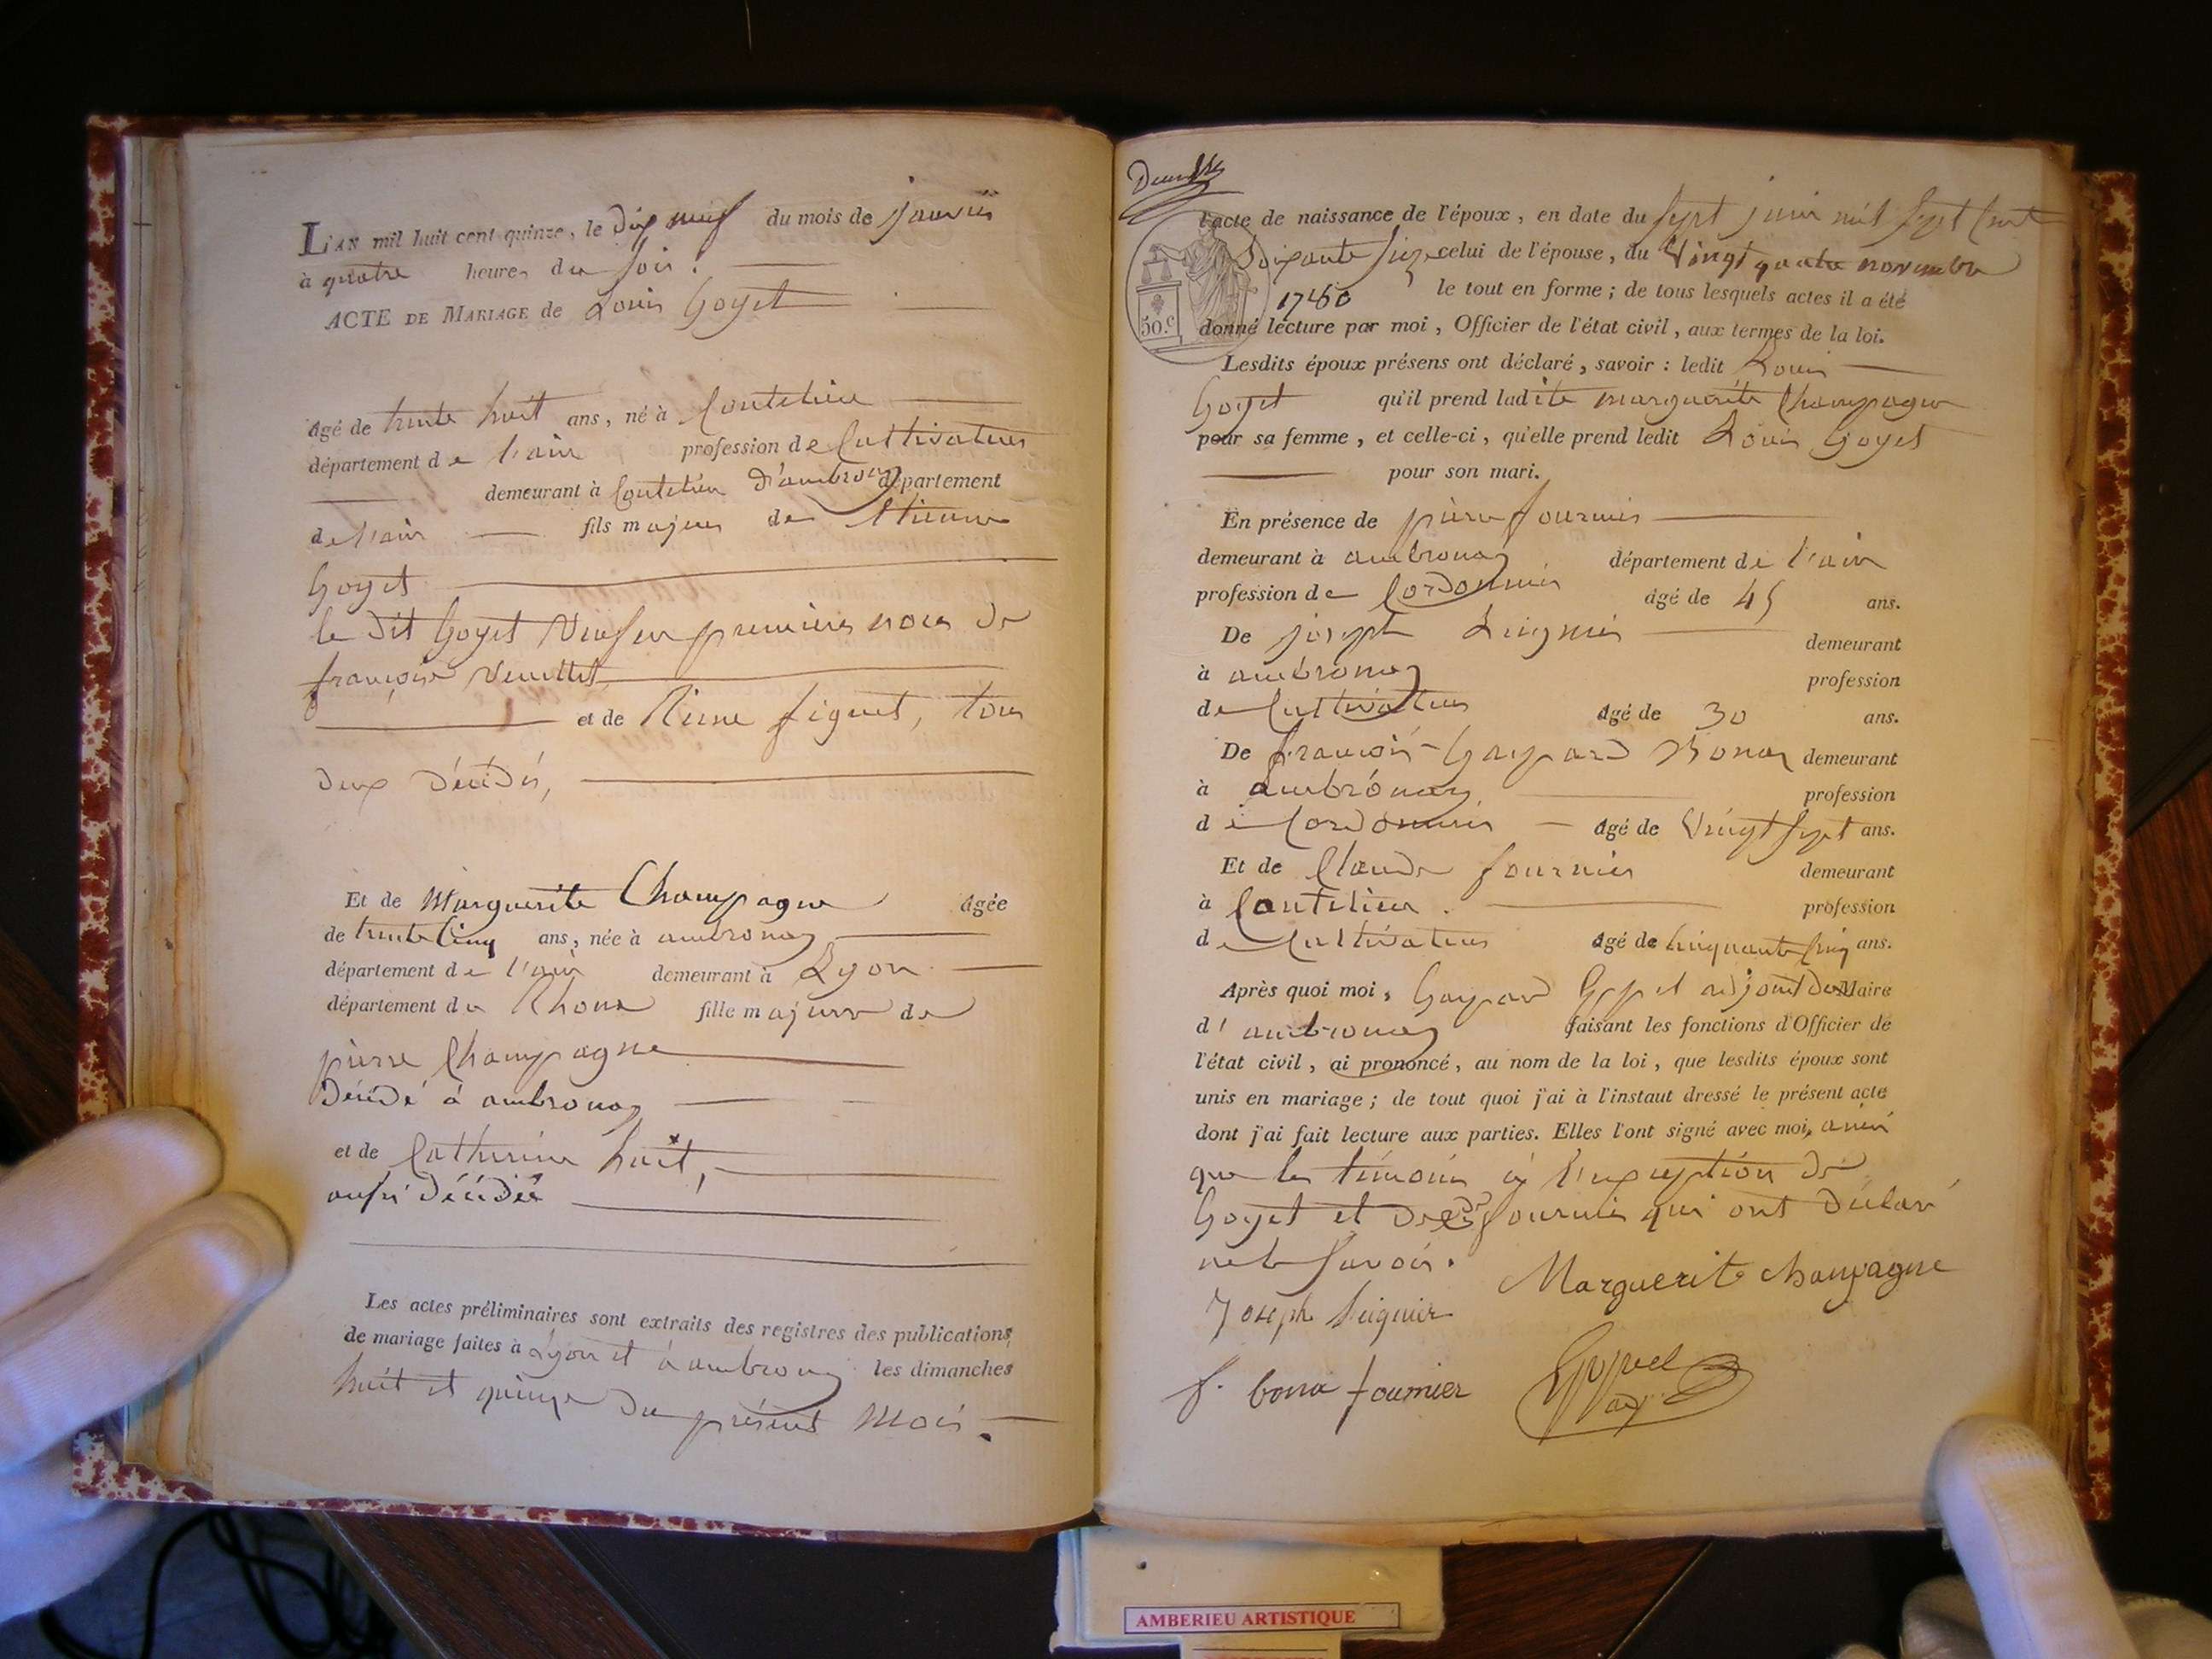 L'AN mil huit cent quinze, le dix neuf du mois de janvier
à quatre heures du soir.
ACTE DE MARIAGE de Louis Goyet
âgé de trente huit ans, né à Coutelieu
département de l'ain profession de Cultivateur
demeurant à Coutelieu d'ambronay département
de l'ain fils majeur de Etienne
Goyet
le dit Goyet veuf en premières noces de
françoise
et de Reine figuet, tous
deux décédés,
Et de Marguerite Champagne âgée
de trente cinq ans, née à ambronay
département de l'ain demeurant à Lyon
département du Rhone fille majeure de
pierre Champagne
Décédé à ambronay
et de Catherine huit,
aussi décédée
Les actes préliminaires sont extraits des registres des publications
de mariage faites à Lyon et à ambronay les dimanches
huit et quinze du présent mois.
l'acte de naissance de l'époux, en date du sept juin mil sept cent
soixante seize celui de l'épouse, du vingt quatre novembre
le tout en forme ; de tous lesquels actes il a été
50.c donné lecture par moi, Officier de l'état civil, aux termes de la loi.
Lesdits époux présens ont déclaré, savoir : ledit Louis
Goyet qu'il prend ladite marguerite Champagne
pour sa femme, et celle-ci, qu'elle prend ledit Louis Goyet
pour son mari.
En présence de pierre fournier
demeurant à ambronay département de l'ain
profession de Cordonnier âgé de 45 ans.
De joseph Seignier demeurant
à ambronay profession
de Cultivateur âgé de 30 ans.
De françois Gaspard Bona demeurant
à ambronay profession
de Cordonnier âgé de vingt sept ans.
Et de Claude fournier demeurant
à Coutelieu. profession
de Cultivateur âgé de cinquante cinq ans.
Après quoi moi, Gaspard Goppet adjoint du Maire
d'ambronay faisant les fonctions d'Officier de
l'état civil, ai prononcé, au nom de la loi, que lesdits époux sont
unis en mariage ; de tout quoi j'ai à l'instant dressé le présent acte
dont j'ai fait lecture aux parties. Elles l'ont signé avec moi, ainsi
que les témoins à l'exception de
Goyet et de fournier qui ont déclaré
ne le savoir.
Marguerite Champagne
Joseph Seignier
f. bona fournier
AMBERIEU ARTISTIQUE